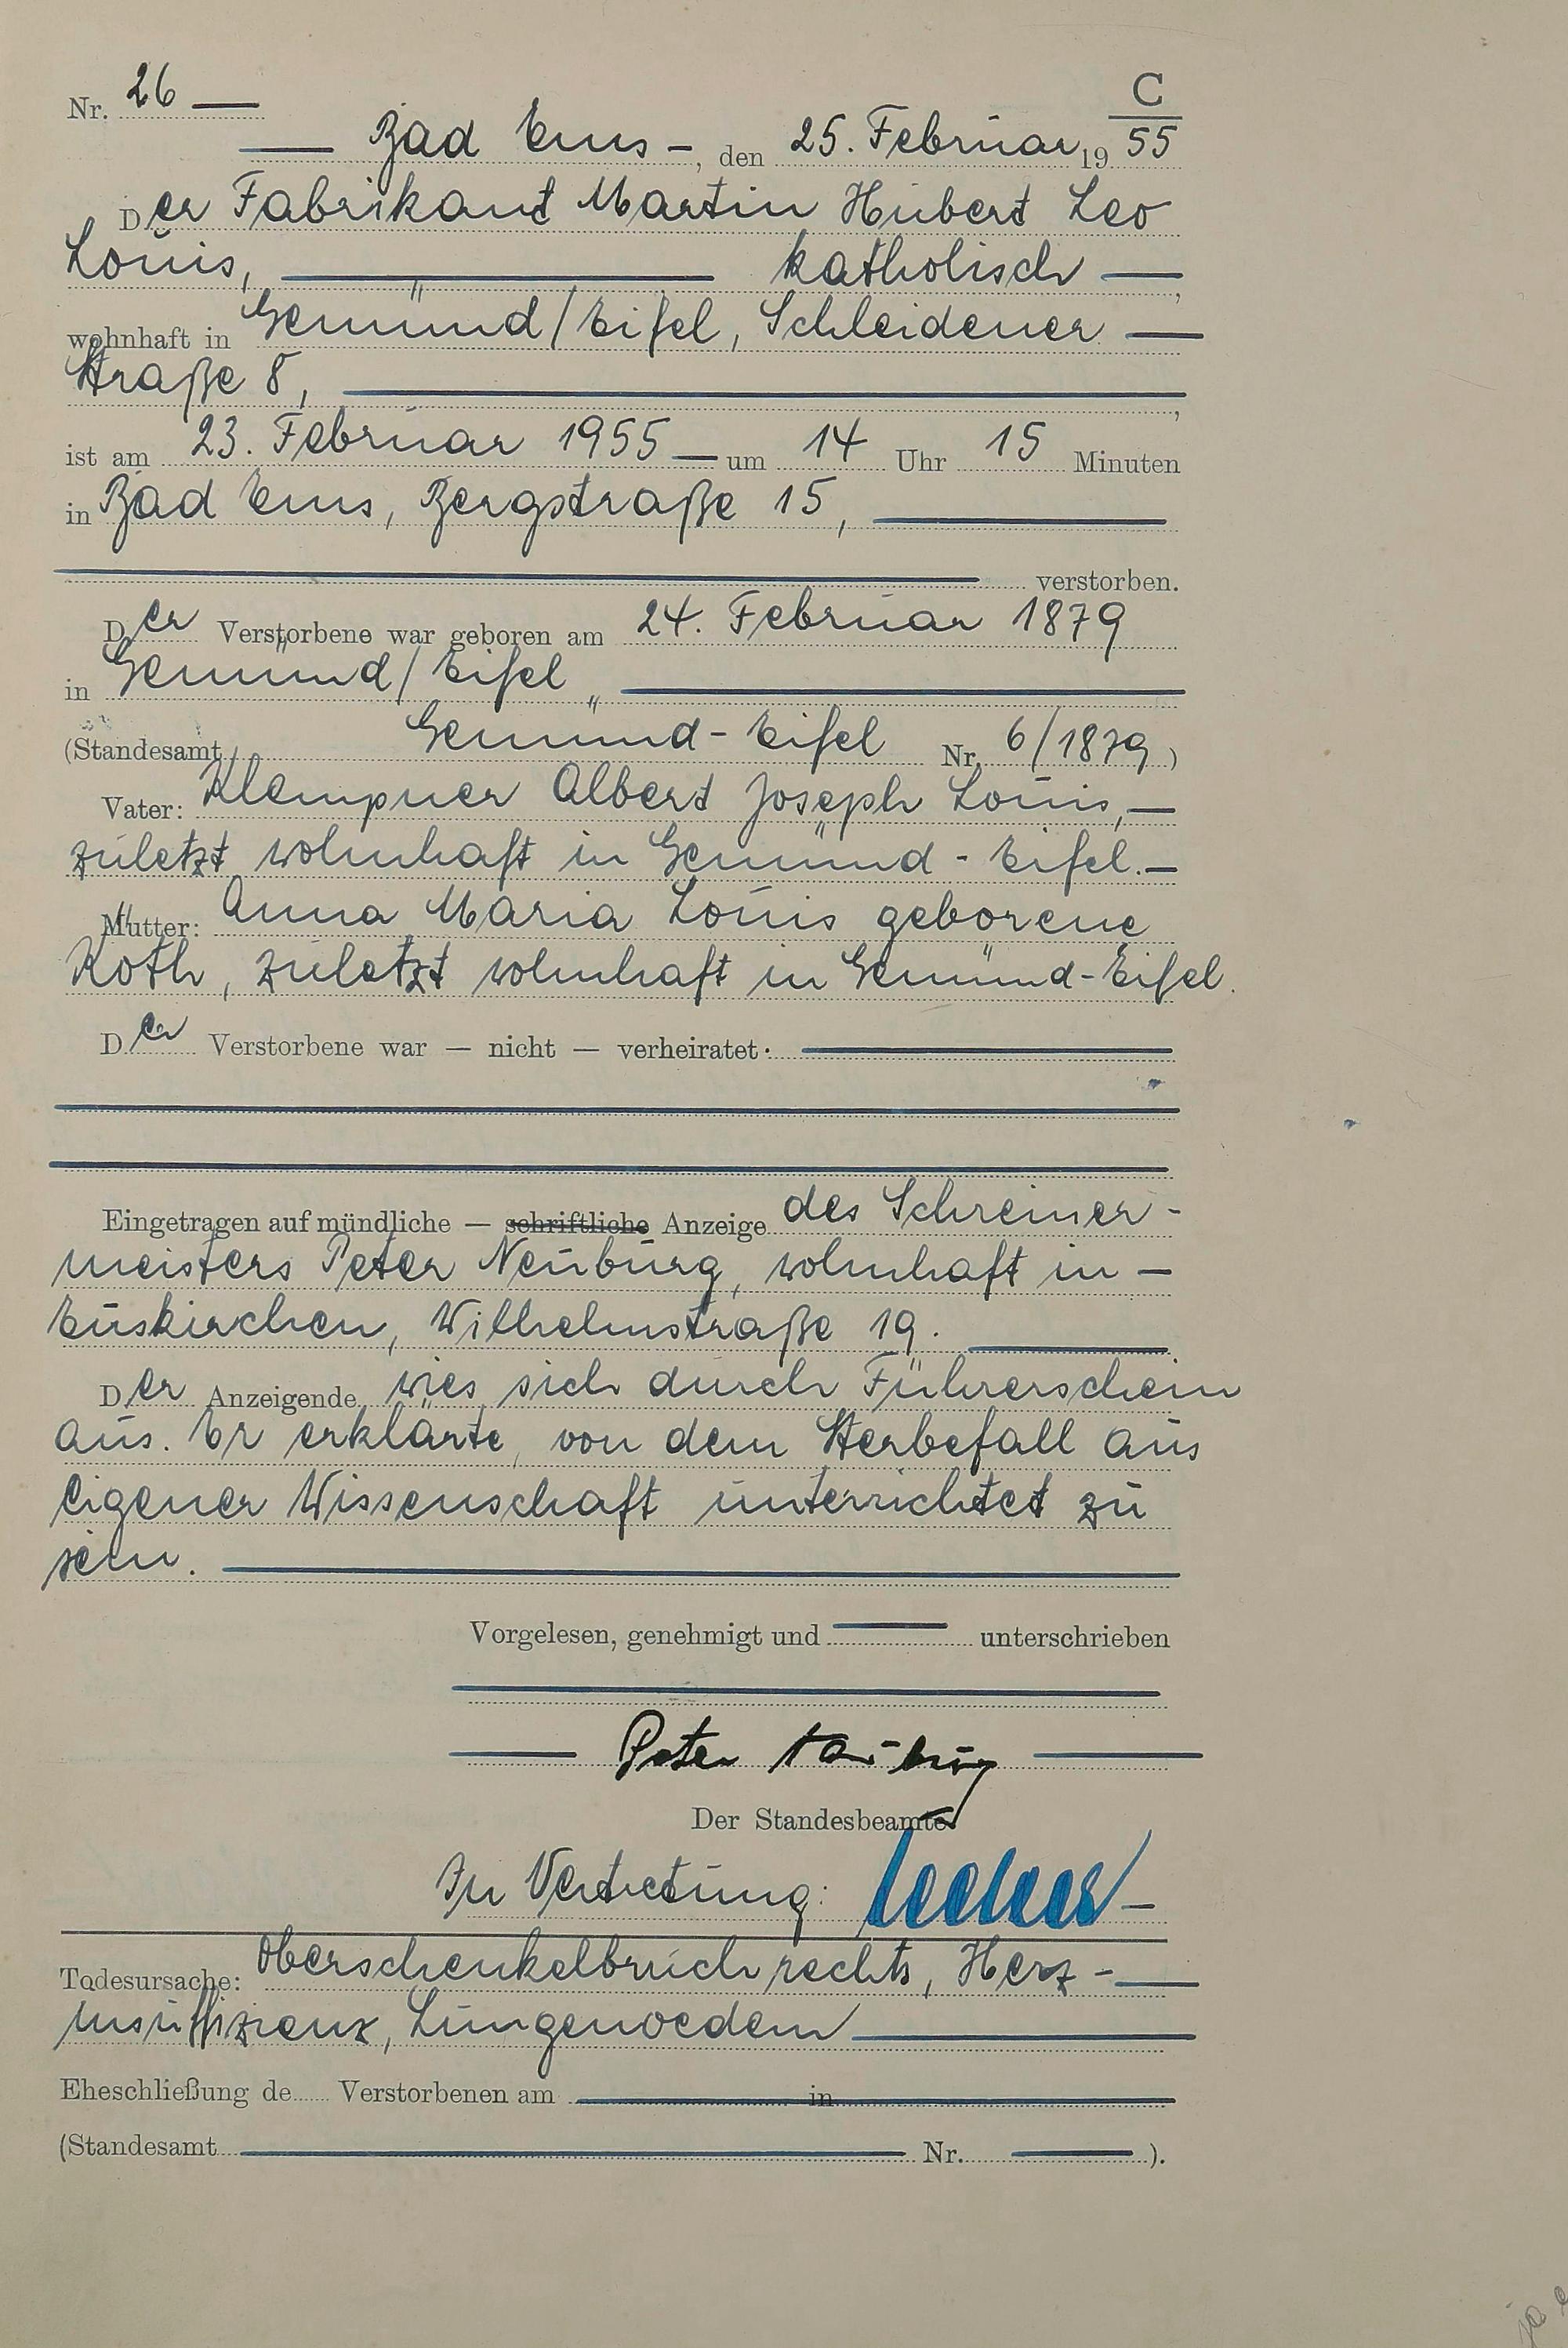 C
Nr. 26 —
— Bad Ems —, den 25. Februar 19 55
Der Fabrikant Martin Hubert Leo
Louis, — katholisch —,
wohnhaft in Gemünd/Eifel, Schleidener —
Straße 8, —,
ist am 23. Februar 1955 — um 14 Uhr 15 Minuten
in Bad Ems, Bergstraße 15, —
— verstorben.
Der Verstorbene war geboren am 24. Februar 1879
in Gemünd/Eifel —
(Standesamt Gemünd-Eifel Nr. 6/1879)
Vater: Klempner Albert Joseph Louis, —
zuletzt wohnhaft in Gemünd-Eifel. —
Mutter: Anna Maria Louis geborene
Koth, zuletzt wohnhaft in Gemünd-Eifel.
Der Verstorbene war — nicht — verheiratet. —
Eingetragen auf mündliche — schriftliche Anzeige des Schreiner-
meisters Peter Neuburg, wohnhaft in —
Euskirchen, Wilhelmstraße 19. —
Der Anzeigende wies sich durch Führerschein
aus. Er erklärte, von dem Sterbefall aus
eigener Wissenschaft unterrichtet zu
sein. —
Vorgelesen, genehmigt und — unterschrieben
— Peter Neuburg —
Der Standesbeamte
In Vertretung: —
Todesursache: Oberschenkelbruch rechts, Herz- —
insuffizienz, Lungenoedem —
Eheschließung de Verstorbenen am — in —
(Standesamt — Nr. — ).